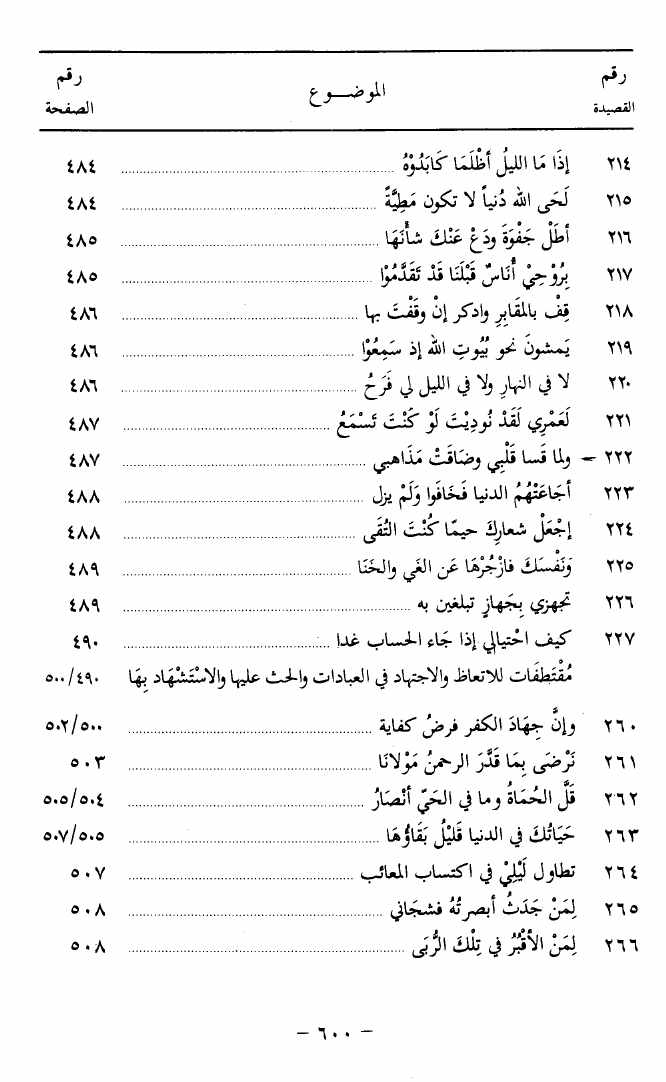 رقم القصيدة الموضـــوع رقم الصفحة
٢١٤ إِذَا مَا الليلُ أَظْلَمَا كَابَدُوْهُ ٤٨٤
٢١٥ لَحَى الله دُنياً لا تكون مَطِيَّةً ٤٨٤
٢١٦ أَطَلْ جَفْوَةَ ودَعْ عَنْكَ شأْنَهَا ٤٨٥
٢١٧ بِرُوْحِيْ أُنَاسٌ قَبْلَنَا قَدْ تَقَدَّمُوْا ٤٨٥
٢١٨ قِفْ بالمقَابِرِ وادكر إِنْ وقَفْتَ بها ٤٨٦
٢١٩ يَمشونَ نحو بُيُوتِ الله إِذ سَمِعُوْا ٤٨٦
٢٢٠ لا في النهارِ ولا في الليل لي فَرَحُ ٤٨٦
٢٢١ لَعَمْرِي لَقَدْ نُودِيْتَ لَوْ كَنْتَ تَسْمَعُ ٤٨٧
٢٢٢ – ولما قَسا قَلْبِي وضَاقَتْ مَذَاهبي ٤٨٧
٢٢٣ أجَاعَتْهُمُ الدنيا فَخَافَوا وَلَمْ يزل ٤٨٨
٢٢٤ إِجْعَلْ شعارِكَ حيمّا كُنْتَ التُقَى ٤٨٨
٢٢٥ وَنَفْسَكَ فازْجُرْهَا عَن الغَي والخَنَا ٤٨٩
٢٢٦ تجهزي بِجَهازٍ تبلغين به ٤٨٩
٢٢٧ كيف احْتيالي إذا جَاء الحساب غدا ٤٩٠
مُقْتَطفَات للاتعاظ والاجتهاد في العبادات والحث عليها والاسْتَشْهَاد بِهَا ٥٠٠/٤٩٠
٢٦٠ وإنَّ جِهَادَ الكفر فرضُ كفاية ٥٠٢/٥٠٠
٢٦١ نَرْضَى بِمَا قَدَّرَ الرحمنُ مَوْلانَا ٥٠٣
٢٦٢ قَلَّ الحُمَاةُ وما في الحَيّ أنْصَارُ ٥٠٥/٥٠٤
٢٦٣ حَيَاتُكَ في الدنيا قَلِيْلُ بَقَاؤُهَا ٥٠٧/٥٠٥
٢٦٤ تطاول لَيْلِيْ في اكتساب المعائب ٥٠٧
٢٦٥ لِمَنْ جَدَثُ أبصرتُهُ فشجَاني ٥٠٨
٢٦٦ لِمَنْ الأقْبُرُ في تِلْكَ الرُّبَى ٥٠٨
– ٦٠٠ –